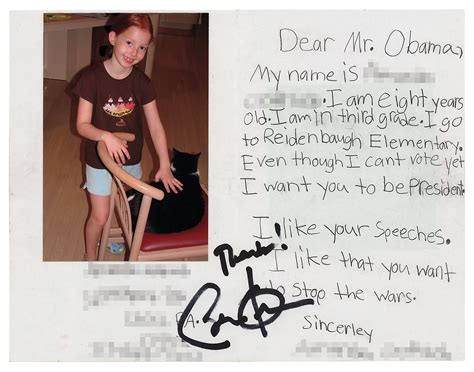 Dear Mr. Obama,
My name is
I am eight years
old. I am in third grade. I go
to Reidenbaugh Elementary.
Even though I cant vote yet
I want you to be President.
I like your Speeches.
I like that you want
to stop the wars.
Sincerley
Thanks!
PA.